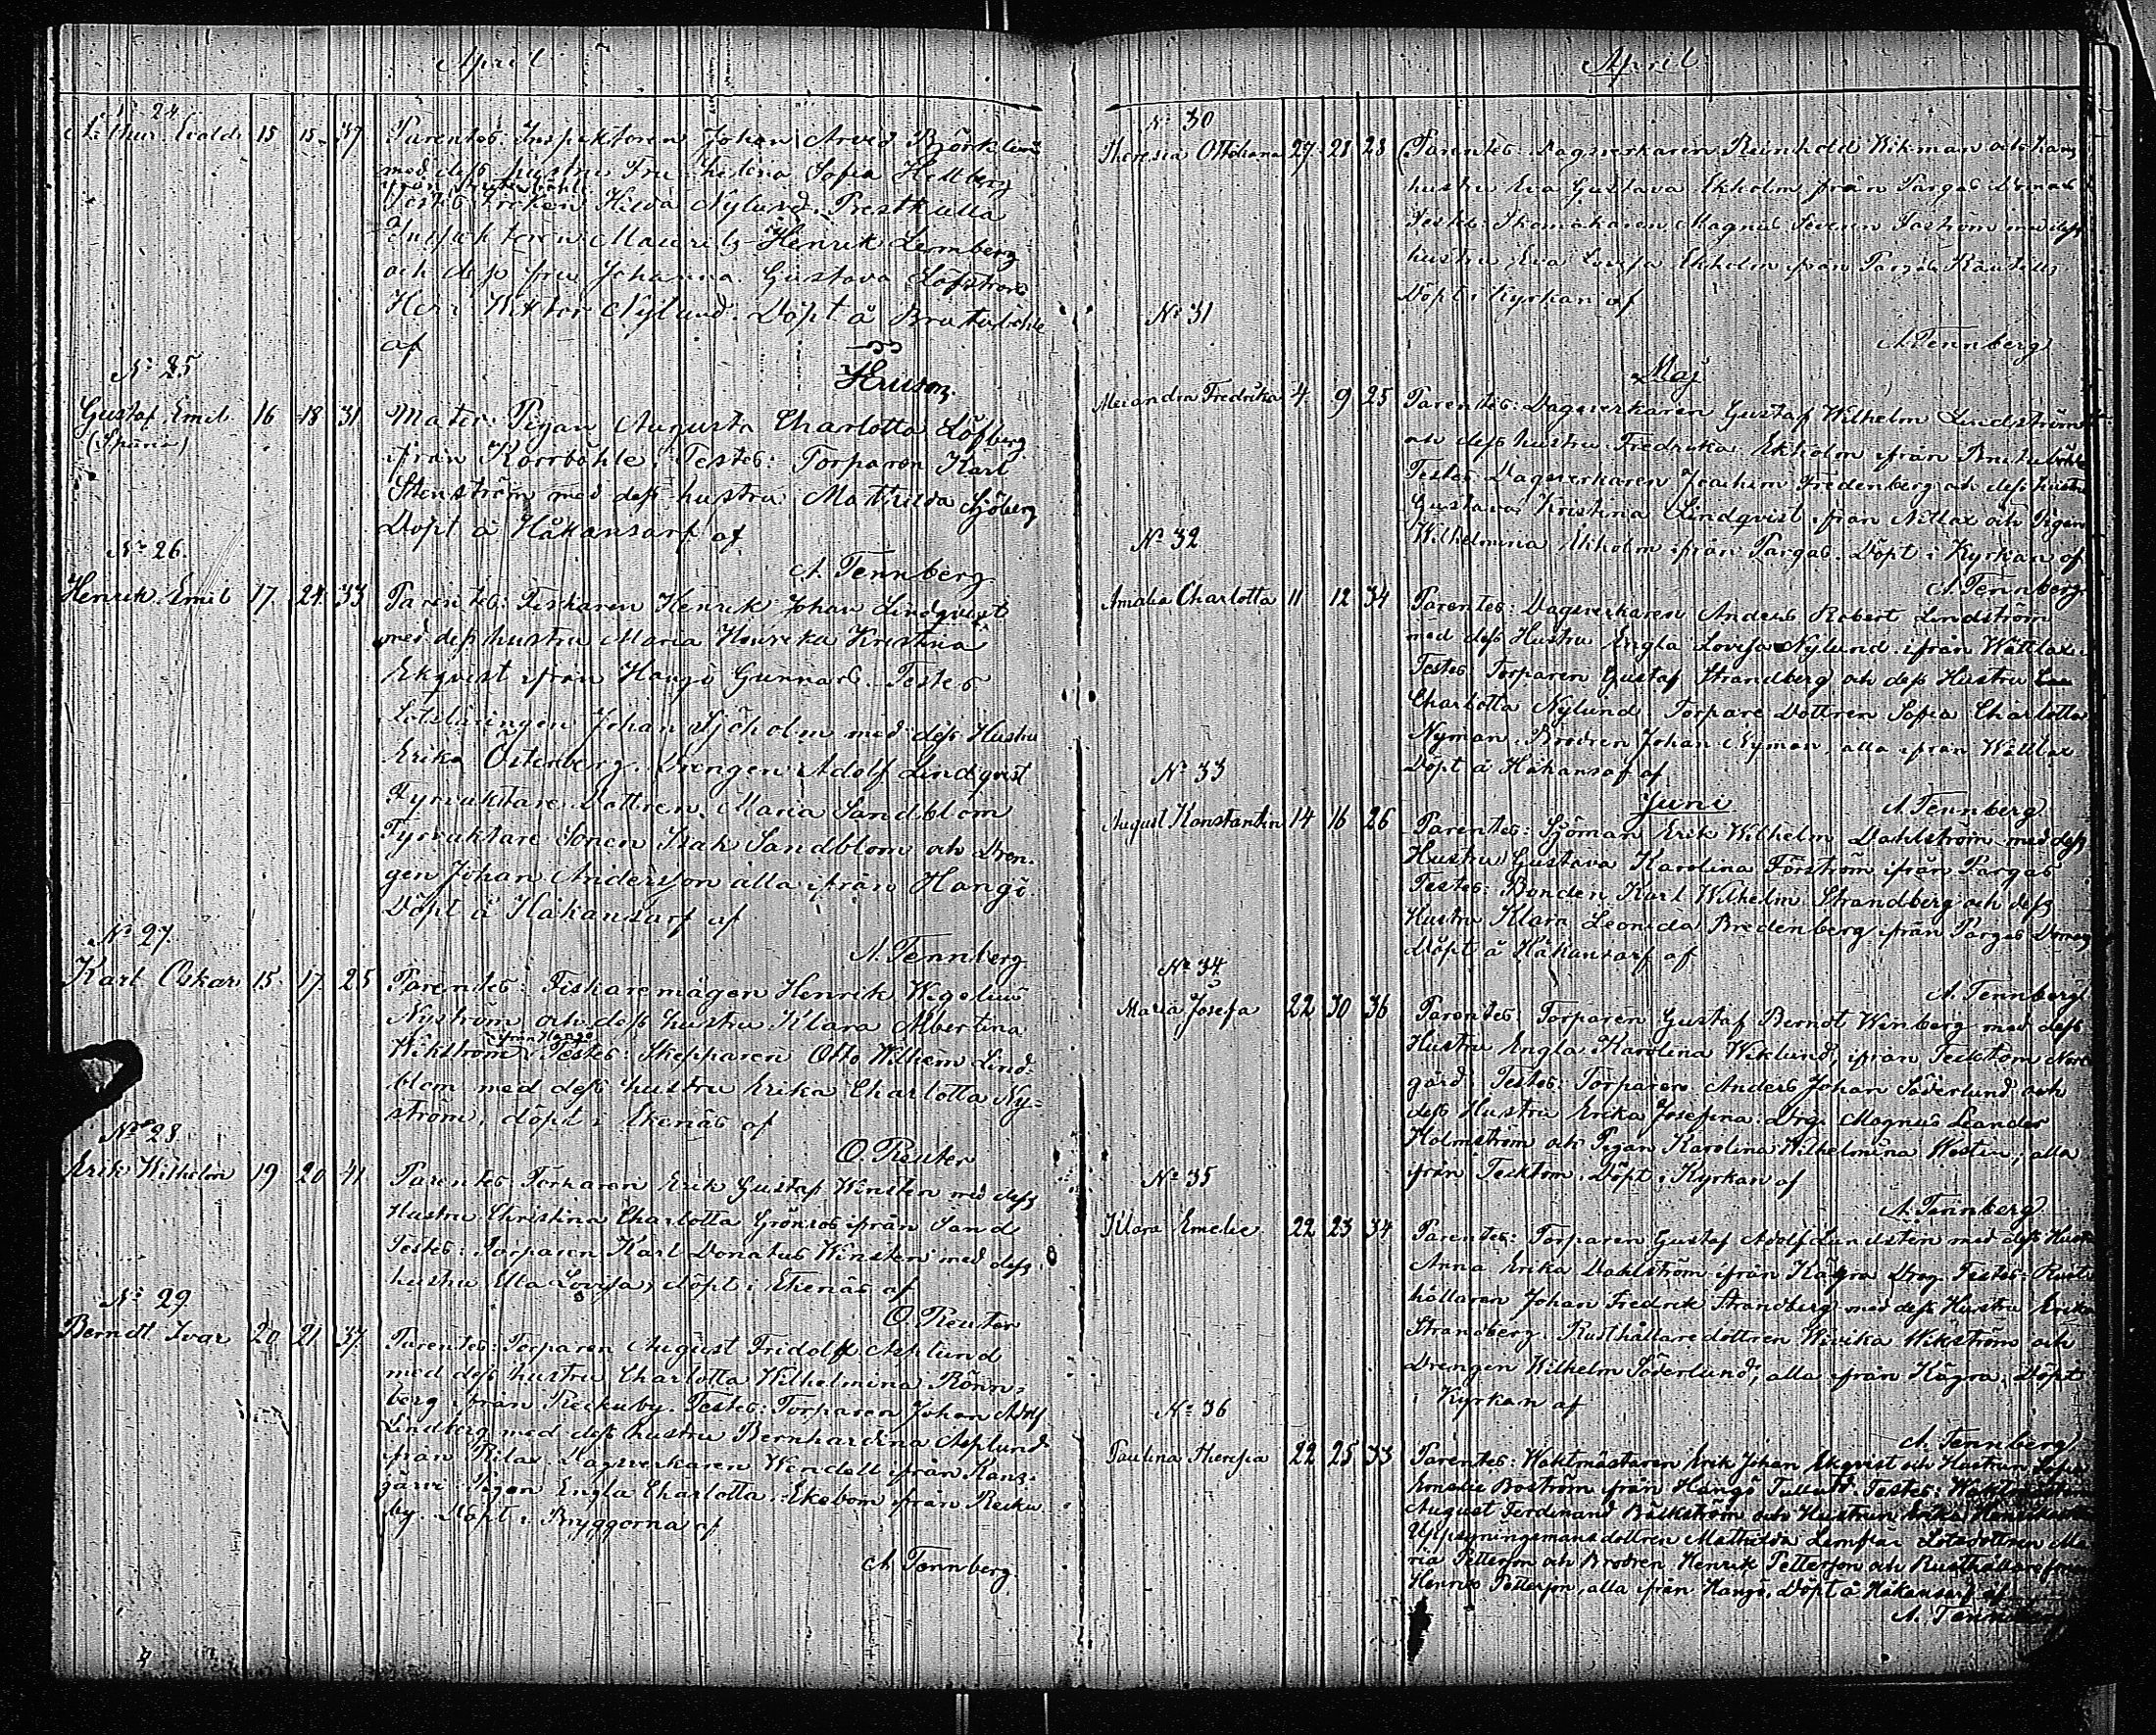 April
No 24
Arthur 15 15 37 Parentes: Inspektoren Johan Arvid Björklund
med dess hustru Fru Sofia Hellberg
Testes Fröken Hilda Nylund. Prestkulla
Inspektoren Maurits Henrik Lemberg
och dess fru Johanna Gustava Löfström
Herr Viktor Nylund. Döpt å
af
No 25
Gustaf Emil 16 18 31 Mater: Pigan Augusta Charlotta Löfberg
(Spuria)
ifrån Korsböhle. Testes: Torparen Karl
Stenström med dess hustru Mathilda Sjöberg
Döpt å Håkansarf af
A. Tennberg
No 26.
Henrik Emil 17 24 33 Parentes: Fiskaren Henrik Johan Lindqvist
med dess hustru Maria Henrika Kristina
Ekqvist ifrån Hangö Gunnars. Testes
Lotsläringen Johan Sjöholm med dess Hustru
Erika Österberg. Drengen Adolf Lindqvist
Fyrvaktare Dottren Maria Sandblom
Fyrvaktare Sonen Isak Sandblom och Dren-
gen Johan Andersson alla ifrån Hangö
Döpt å Håkansarf af
A. Tennberg
No 27.
Karl Oskar 15 17 25 Parentes: Fiskaremågen Henrik Wigelius
Nyström och dess hustru Klara Albertina
ifrån Hangö
Wikström Testes: Skepparen Otto Wilhelm Lind-
blom med dess hustru Erika Charlotta Ny-
ström, döpt i Ekenäs af
O. Reuter
No 28
Erik Wilhelm 19 20 41 Parentes Torparen Erik Gustaf Winsten med dess
Hustru Christina Charlotta Grönroos ifrån Sand
Testes: Torparen Karl Donatus Winsten med dess
hustru Ulla Lovisa, döpt i Ekenäs af
O. Reuter
No 29
Berndt Ivar 20 21 37 Parentes: Torparen August Fridolf Asplund
med dess hustru Charlotta Wilhelmina Rönn-
berg ifrån Reckuby. Testes: Torparen Johan Adolf
Lindberg med dess hustru Bernhardina Asplund
ifrån Rilax. Dagsverkaren Wendell ifrån Kans-
järvi Pigan Engla Charlotta Ekebom ifrån Recku
by. Döpt i Bryggorna af
A Tennberg
April
No 30
Theresia Ottiliana 27 28 28 Parentes: Dagsverkaren Reinhold Wikman och hans
hustru Eva Gustava Ekholm från Pargas
Testes: Skomakaren Magnus Severin Söström med dess
hustru Eva Lovisa Ekholm ifrån Pargas
Döpt i Kyrkan af
A Tennberg
No 31
Maj
Alexandra Fredrika 4 9 25 Parentes: Dagsverkaren Gustaf Wilhelm Lindström
och dess hustru Fredrika Ekholm ifrån
Testes: Dagsverkaren Joachim Fredenberg och dess hustru
Gustava Kristina Lindqvist från och Pigan
Wilhelmina Ekholm ifrån Pargas. Döpt i Kyrkan af
A. Tennberg
No 32
Amalia Charlotta 11 12 34 Parentes: Dagsverkaren Anders Robert Lindström
med dess Hustru Engla Lovisa Nylund ifrån Wättlax
Testes: Torparen Gustaf Strandberg och dess Hustru
Charlotta Nylund Torpare Dottren Sofia Charlotta
Nyman Brodren Johan Nyman, alla ifrån Wättlax
Döpt å Håkansarf af
A. Tennberg
No 33
Juni
August Konstantin 14 16 26 Parentes: Sjöman Erik Wilhelm Dahlström med dess
Hustru Gustava Karolina Forström ifrån Pargas
Testes: Bonden Karl Wilhelm Strandberg och dess
Hustru Klara Leonida Bredenberg ifrån Pargas
Döpt å Håkansarf af
A. Tennberg
No 34
Maria Josefa 22 30 36 Parentes Torparen Gustaf Berndt Winberg med dess
Hustru Engla Karolina Wiklund, ifrån Tecktom Norr
gård. Testes: Torparen Anders Johan Söderlund och
dess Hustru Erika Josefina. Drg. Magnus Leander
Holmström och Pigan Karolina Wilhelmina Westin, alla
ifrån Tecktom. Döpt i Kyrkan af
A. Tennberg
No 35
Klara Emelie 22 23 34 Parentes: Torparen Gustaf Adolf Lundsten med dess Hustru
Anna Erika Dahlström ifrån Kägra Testes: Rust
hållaren Johan Fredrik Strandberg med dess Hustru Erika
Strandberg. Rusthållaredottren Wivika Wikström och
Drengen Wilhelm Söderlund, alla ifrån Kägra, Döpt
i Kyrkan af
A. Tennberg
No 36
Paulina Theresia 22 25 33 Parentes: Waktmästaren Erik Johan Ekqvist och Hustrun Sofia
Emelie Boström ifrån Hangö Testes: Waktmästaren
August Ferdinand Bäckström och Hustrun Erika
Uppsyningsmansdottren Mathilda Lotsdottren Ma
ria Pettersson och Brodren Henrik Pettersson och Rusthållaresonen
Henrik Pettersson, alla ifrån Hangö. Döpt å Håkansarf af
A. Tennberg